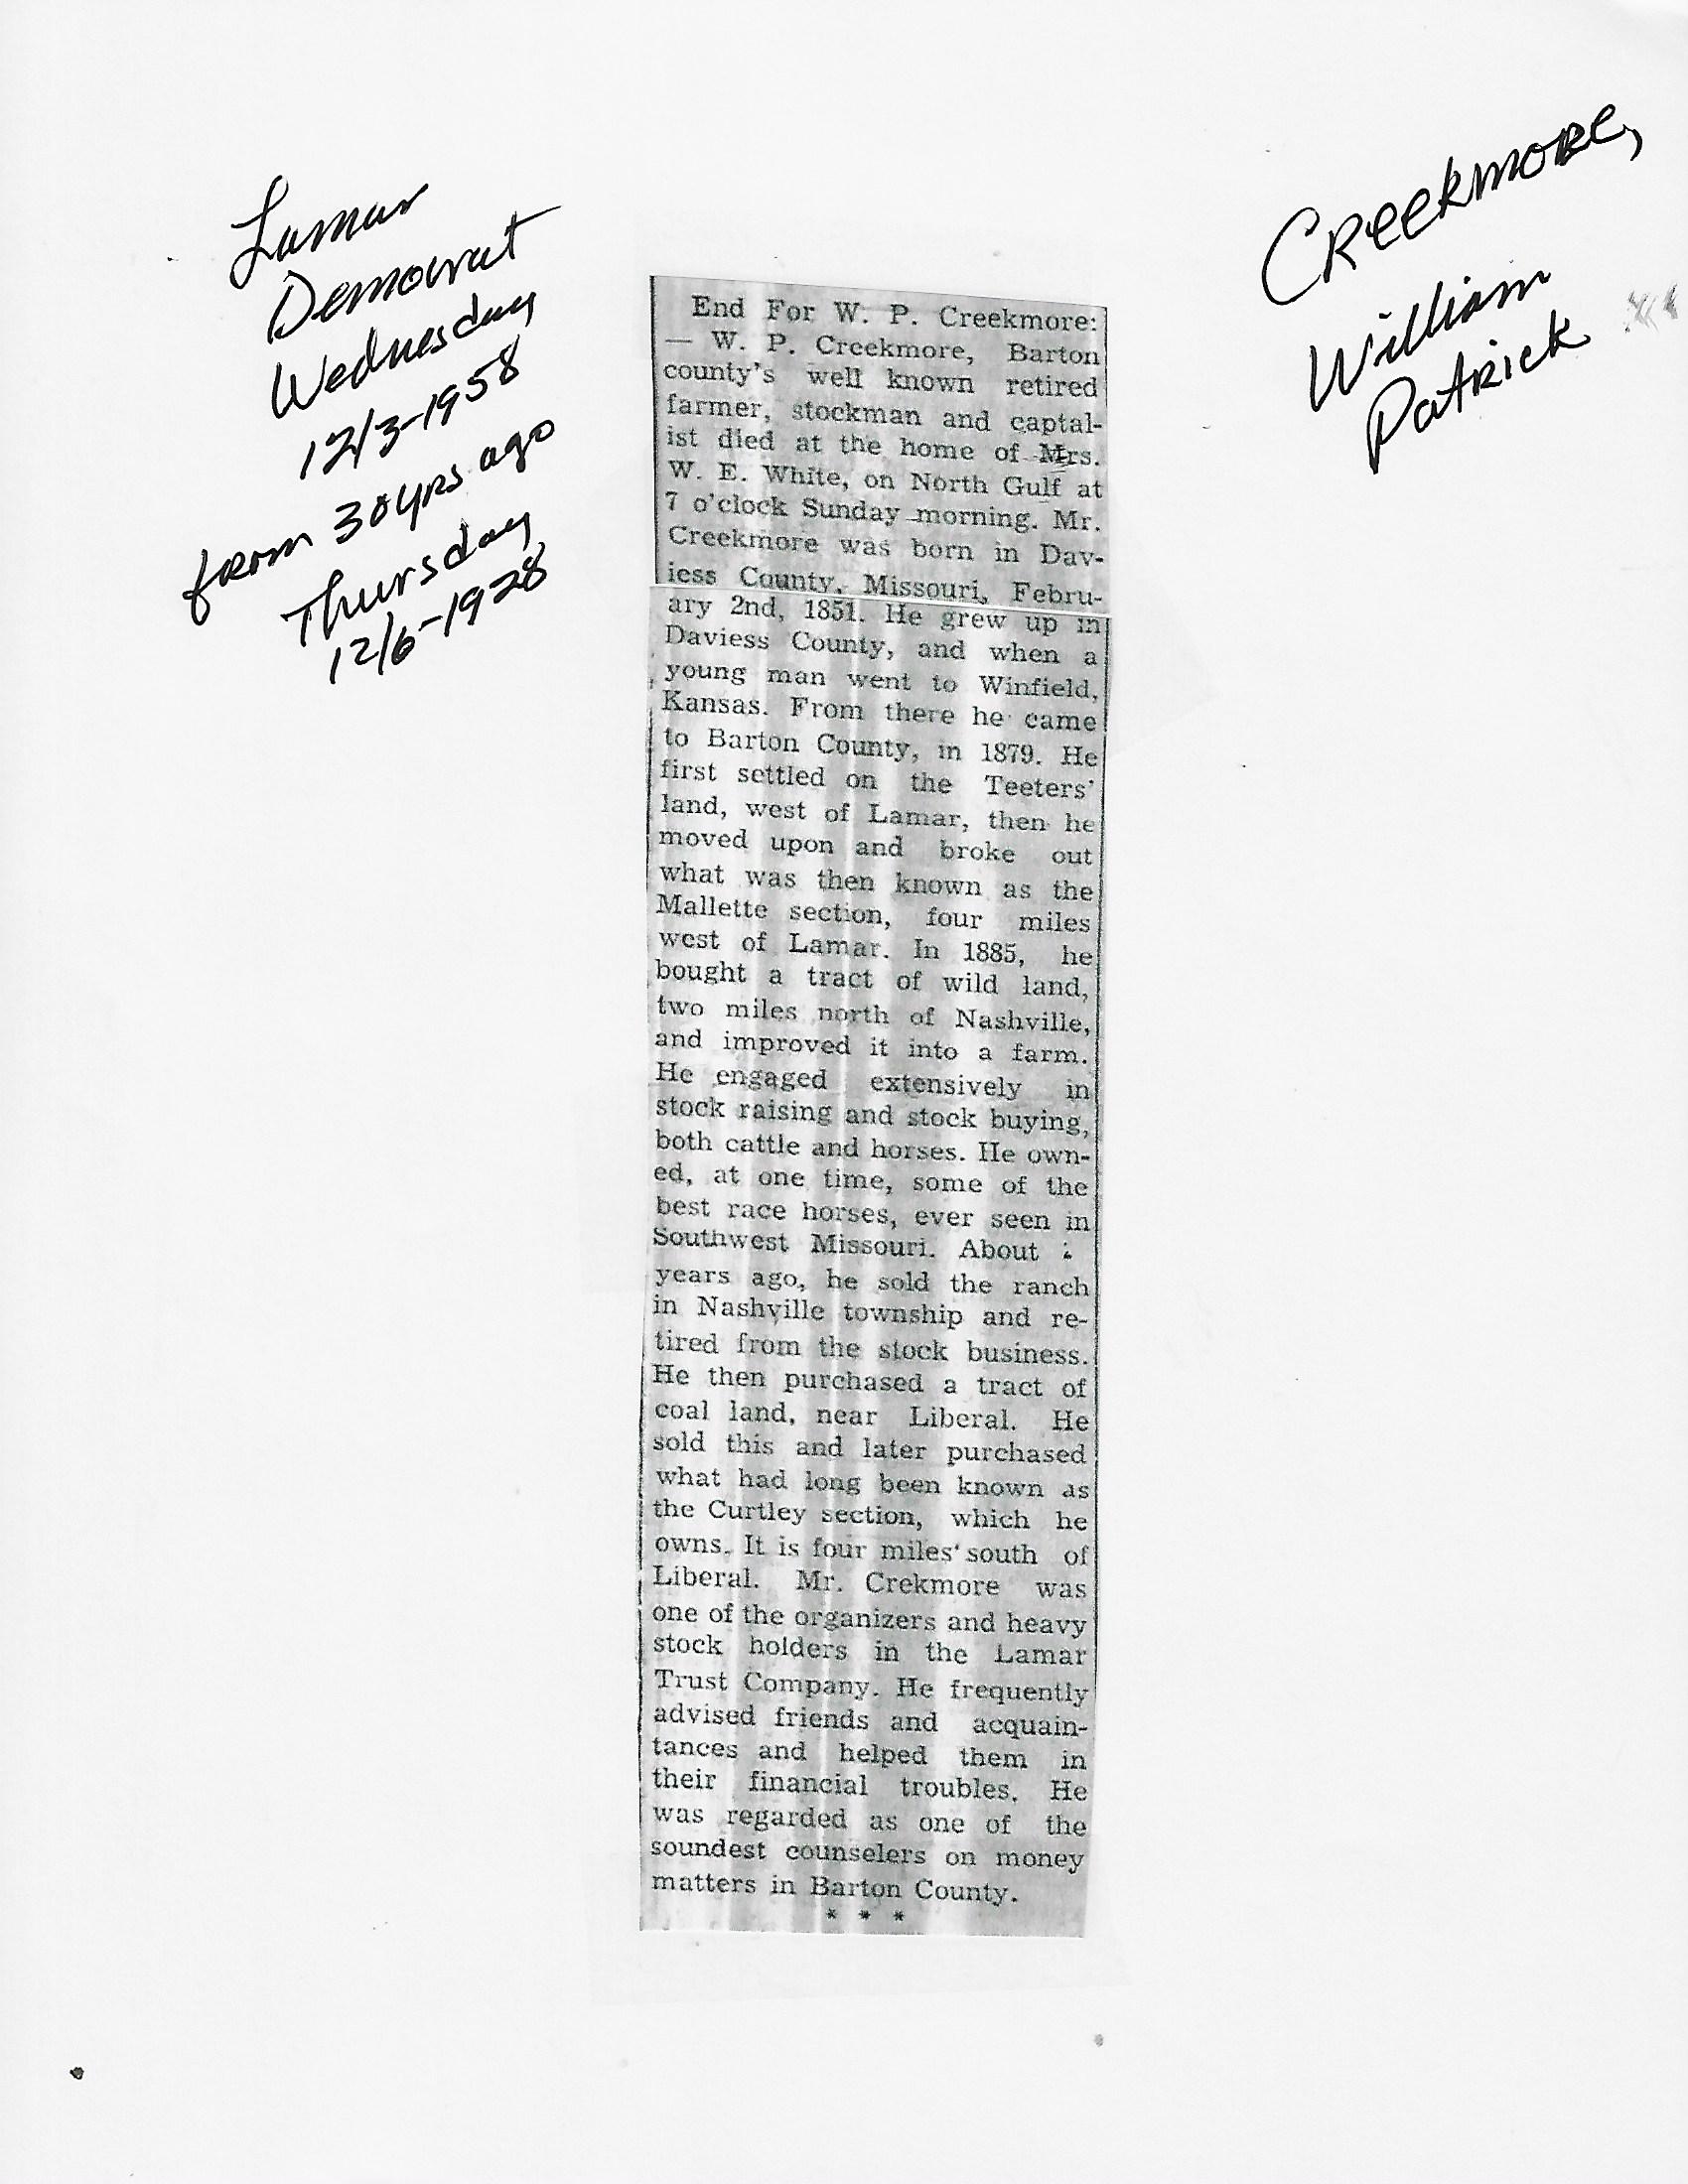 Lamar
Democrat
Wednesday
12/3-1958
from 30 yrs ago
Thursday
12/6-1928
Creekmore,
William
Patrick
End For W. P. Creekmore:
— W. P. Creekmore, Barton
county's well known retired
farmer, stockman and captal-
ist died at the home of Mrs.
W. E. White, on North Gulf at
7 o'clock Sunday morning. Mr.
Creekmore was born in Dav-
iess County, Missouri, Febru-
ary 2nd, 1851. He grew up in
Daviess County, and when a
young man went to Winfield,
Kansas. From there he came
to Barton County, in 1879. He
first settled on the Teeters'
land, west of Lamar, then he
moved upon and broke out
what was then known as the
Mallette section, four miles
west of Lamar. In 1885, he
bought a tract of wild land,
two miles north of Nashville,
and improved it into a farm.
He engaged extensively in
stock raising and stock buying,
both cattle and horses. He own-
ed, at one time, some of the
best race horses, ever seen in
Southwest Missouri. About
years ago, he sold the ranch
in Nashville township and re-
tired from the stock business.
He then purchased a tract of
coal land, near Liberal. He
sold this and later purchased
what had long been known as
the Curtley section, which he
owns. It is four miles south of
Liberal. Mr. Crekmore was
one of the organizers and heavy
stock holders in the Lamar
Trust Company. He frequently
advised friends and acquain-
tances and helped them in
their financial troubles. He
was regarded as one of the
soundest counselers on money
matters in Barton County.
* * *